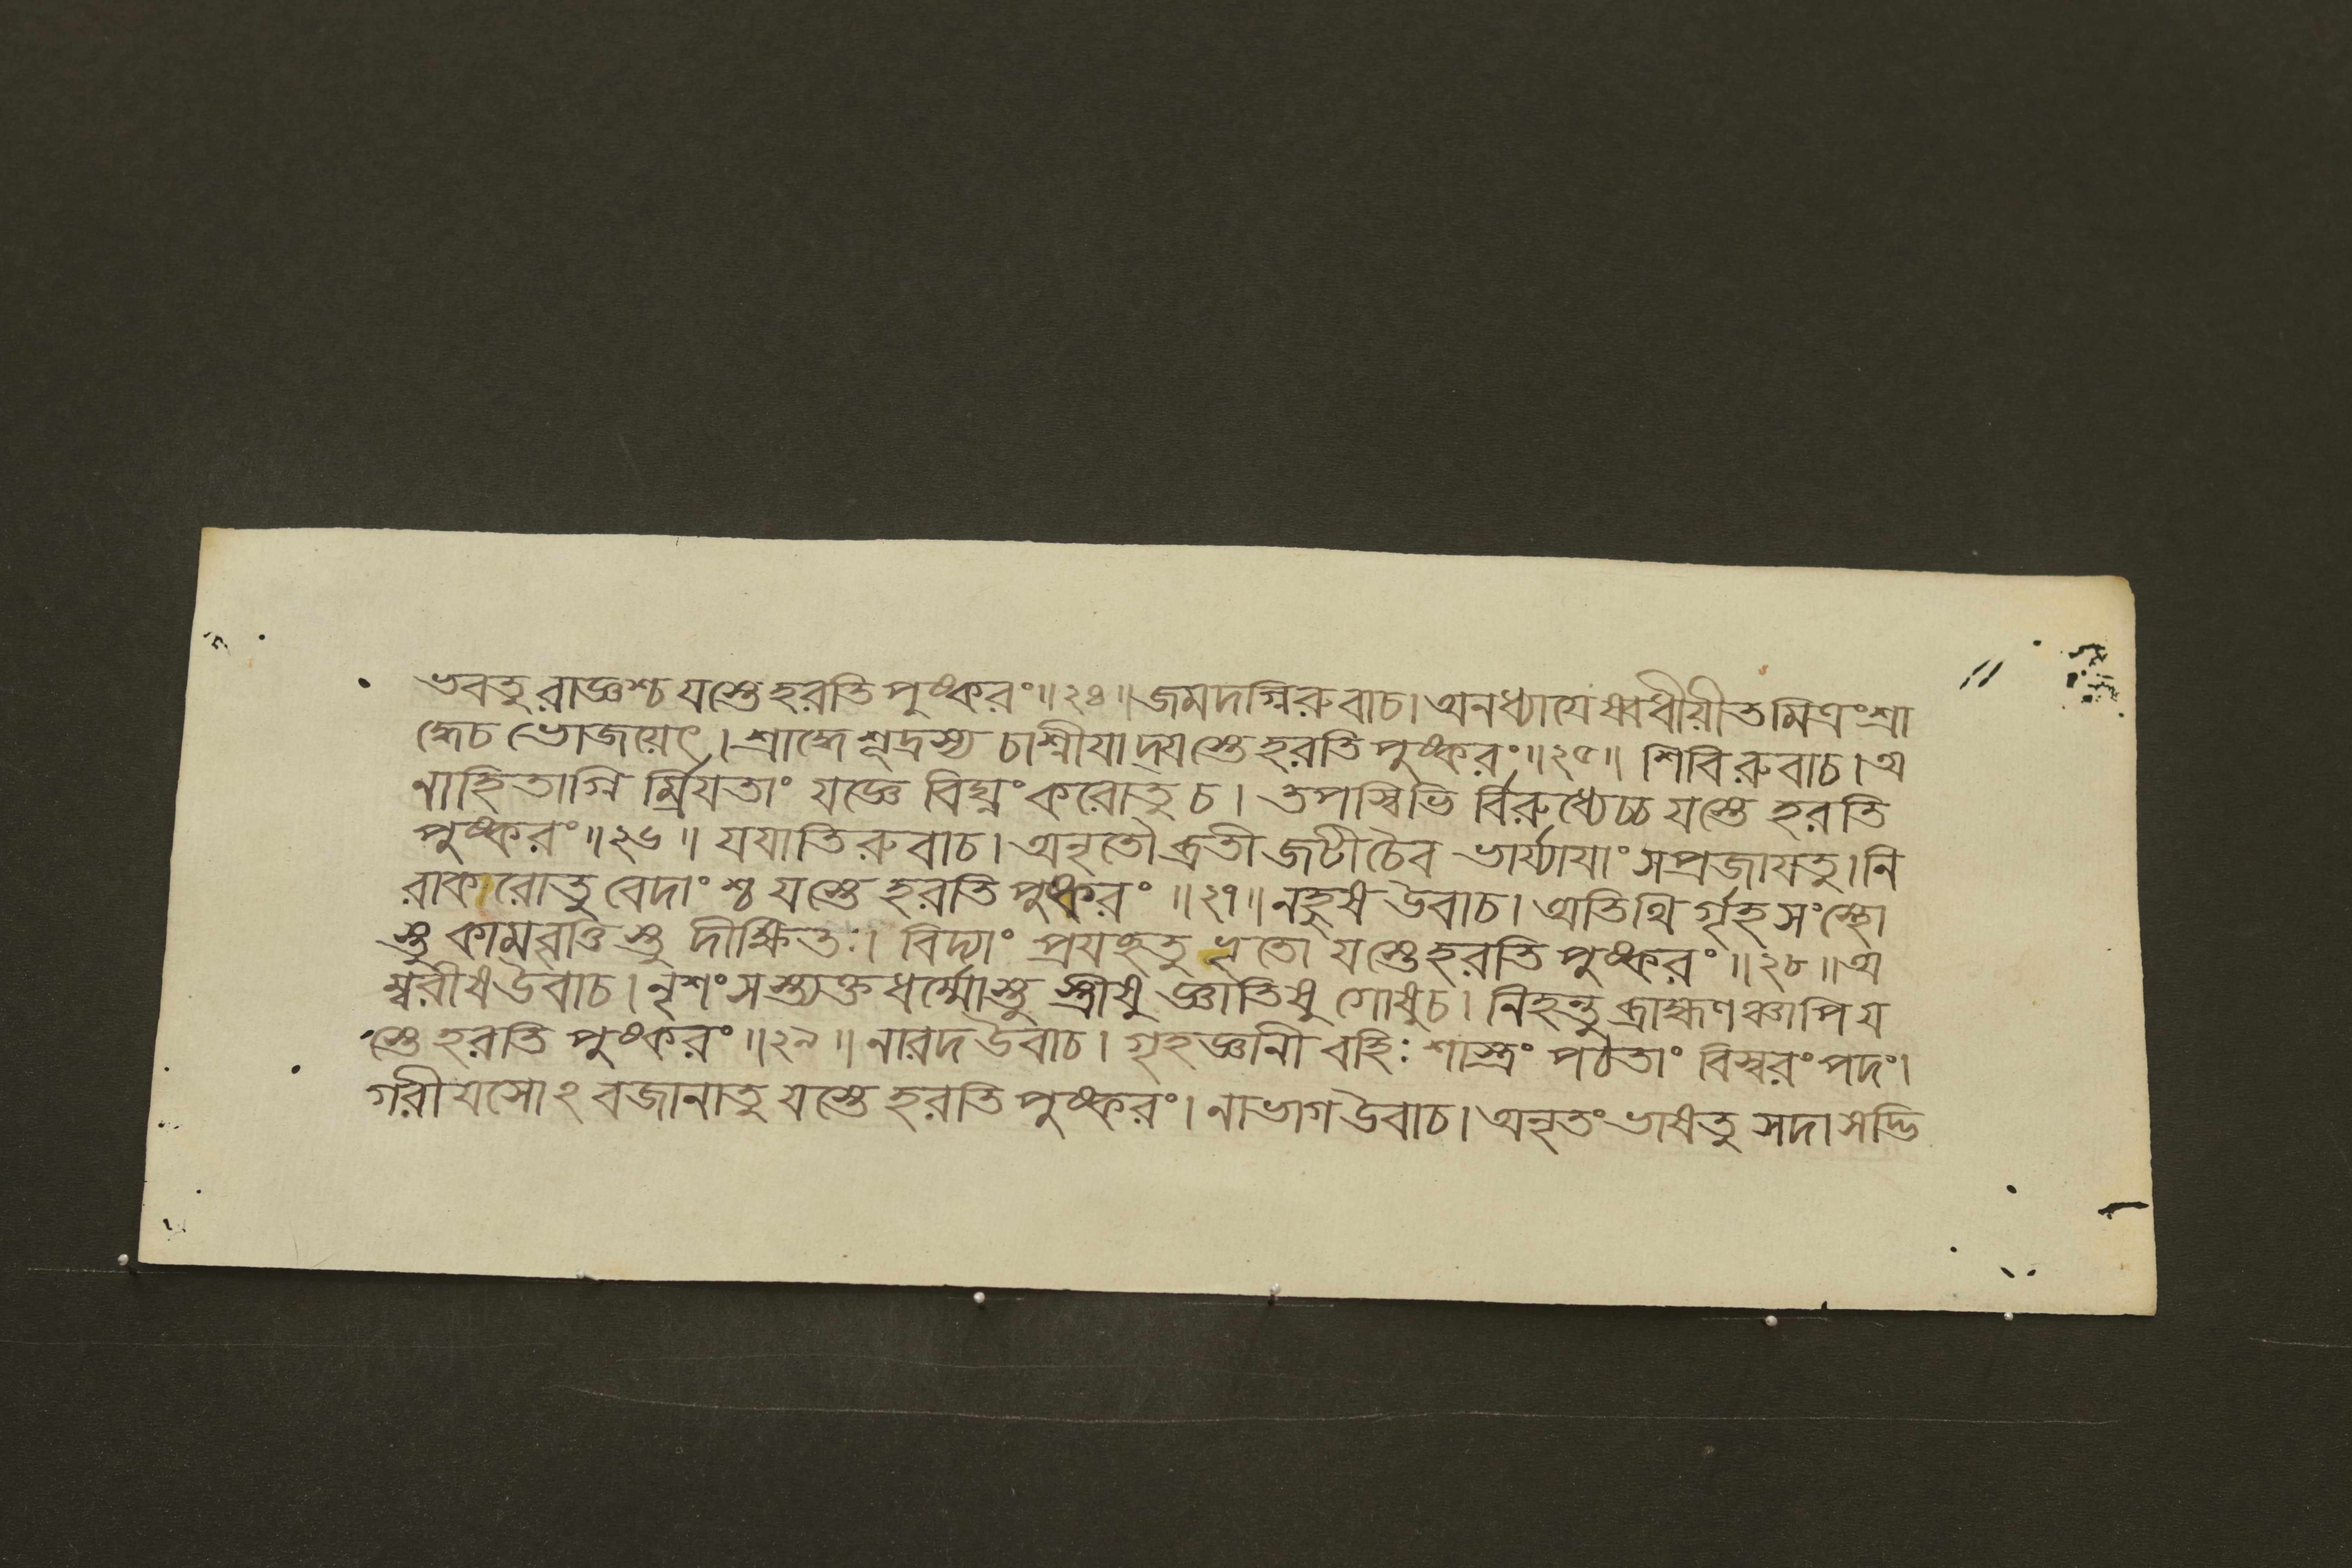 ভবতু রাজ্ঞশ্চ যস্তে হরতি পুষ্করং॥২৪॥ জমদগ্নিরুবাচ। অনধ্যাযেষ্বধীয়ীত মিত্রং শ্রা
দ্ধেচ ভোজয়েৎ। শ্রাদ্ধে শূদ্রস্য চাশ্নীযাদ্যস্তে হরতি পুষ্করং॥২৫॥ শিবিরুবাচ। অ
নাহিতাগ্নি র্ম্রিযতাং যজ্ঞে বিঘ্নং করোতু চ। তপস্বিভি র্বিরুধ্যেচ্চ যস্তে হরতি
পুষ্করং॥২৬॥ যযাতিরুবাচ। অনৃতৌ ব্রতী জটী চৈব ভার্য্যাযাং সপ্রজাযতু। নি
রাকরোতু বেদাংশ্চ যস্তে হরতি পুষ্করং॥২৭॥ নহুষ উবাচ। অতিথি র্গৃহসংস্থো
স্তু কামবৃত্তস্তু দীক্ষিতঃ। বিদ্যাং প্রযচ্ছতু ভৃতো যস্তে হরতি পুষ্করং॥২৮॥ অ
ম্বরীষ উবাচ। নৃশংসস্ত্যক্তধর্ম্মোস্তু স্ত্রীষু জ্ঞাতিষু গোষুচ। নিহন্তু ব্রাহ্মণঞ্চাপি য
স্তে হরতি পুষ্করং॥২৯॥ নারদ উবাচ। গৃহজ্ঞানী বহিঃ শাস্ত্রং পঠতাং বিস্বরং পদং।
গরীযসোঽবজানাতু যস্তে হরতি পুষ্করং। নাভাগ উবাচ। অনৃতং ভাষতু সদা সদ্ভি